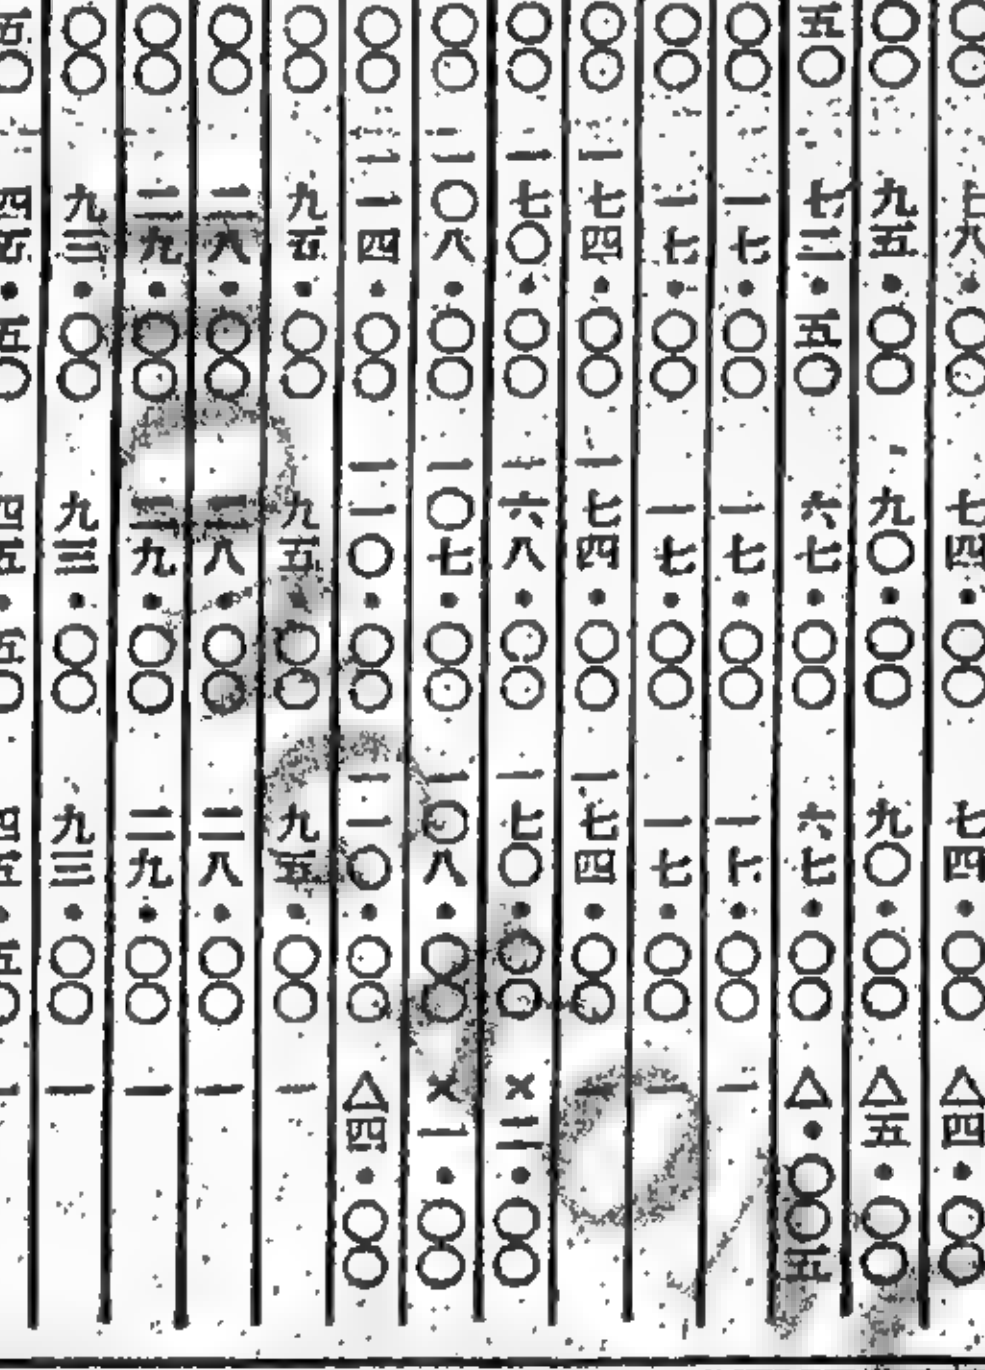 〇〇 七八・〇〇 七四・〇〇 七四・〇〇 △四・〇〇
〇〇 九五・〇〇 九〇・〇〇 九〇・〇〇 △五・〇〇
五〇 七三・五〇 六七・〇〇 六七・〇〇 △・〇〇五
〇〇 一七・〇〇 一七・〇〇 一七・〇〇 一
〇〇 一七・〇〇 一七・〇〇 一七・〇〇 一
〇〇 一七四・〇〇 一七四・〇〇 一七四・〇〇 一
〇〇 一七〇・〇〇 一六八・〇〇 一七〇・〇〇 ×二・〇〇
〇〇 一〇八・〇〇 一〇七・〇〇 一〇八・〇〇 ×一・〇〇
〇〇 一一四・〇〇 一一〇・〇〇 一一〇・〇〇 △四・〇〇
〇〇 九五・〇〇 九五・〇〇 九五・〇〇 一
〇〇 二八・〇〇 二八・〇〇 二八・〇〇 一
〇〇 二九・〇〇 二九・〇〇 二九・〇〇 一
〇〇 九三・〇〇 九三・〇〇 九三・〇〇 一
五〇 四五・五〇 四五・五〇 四五・五〇 一